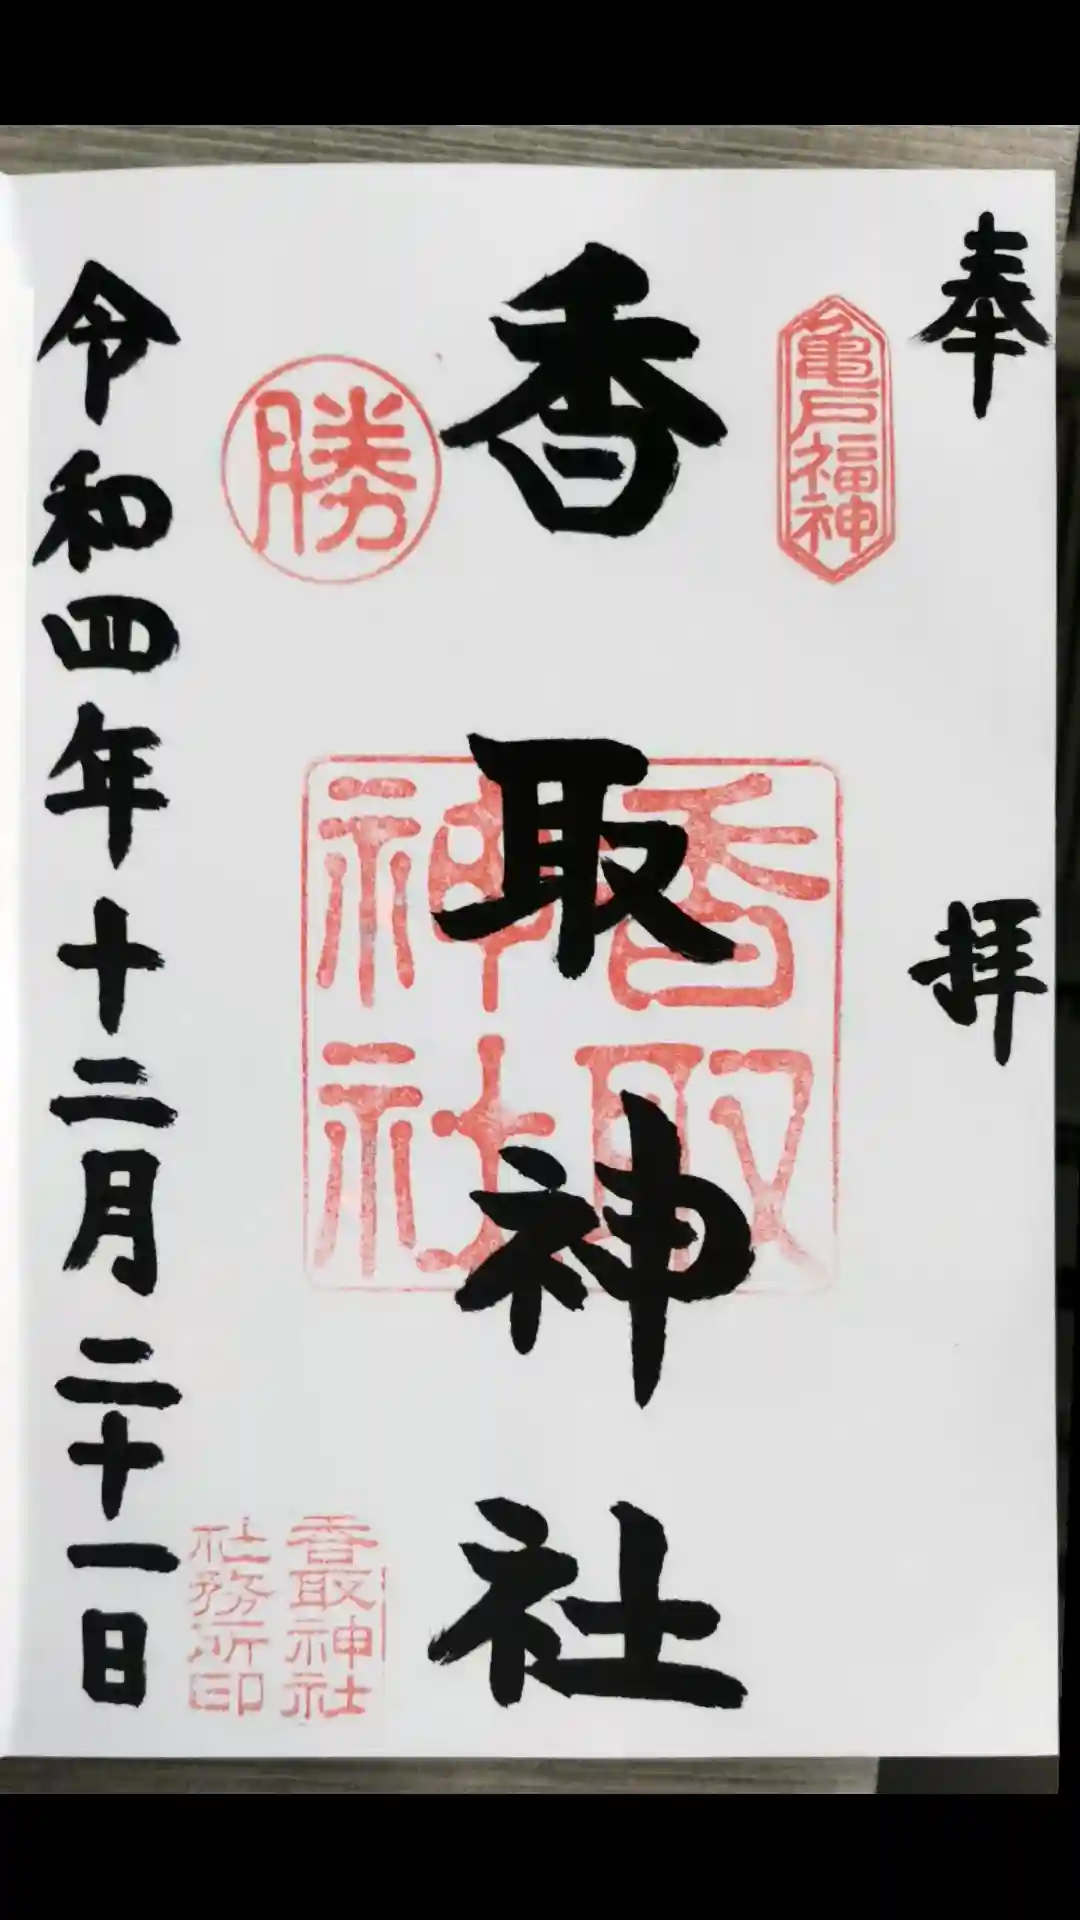 奉拝
亀戸福神
香取神社
香取神社
勝
香取神社
社務所印
令和四年十二月二十一日